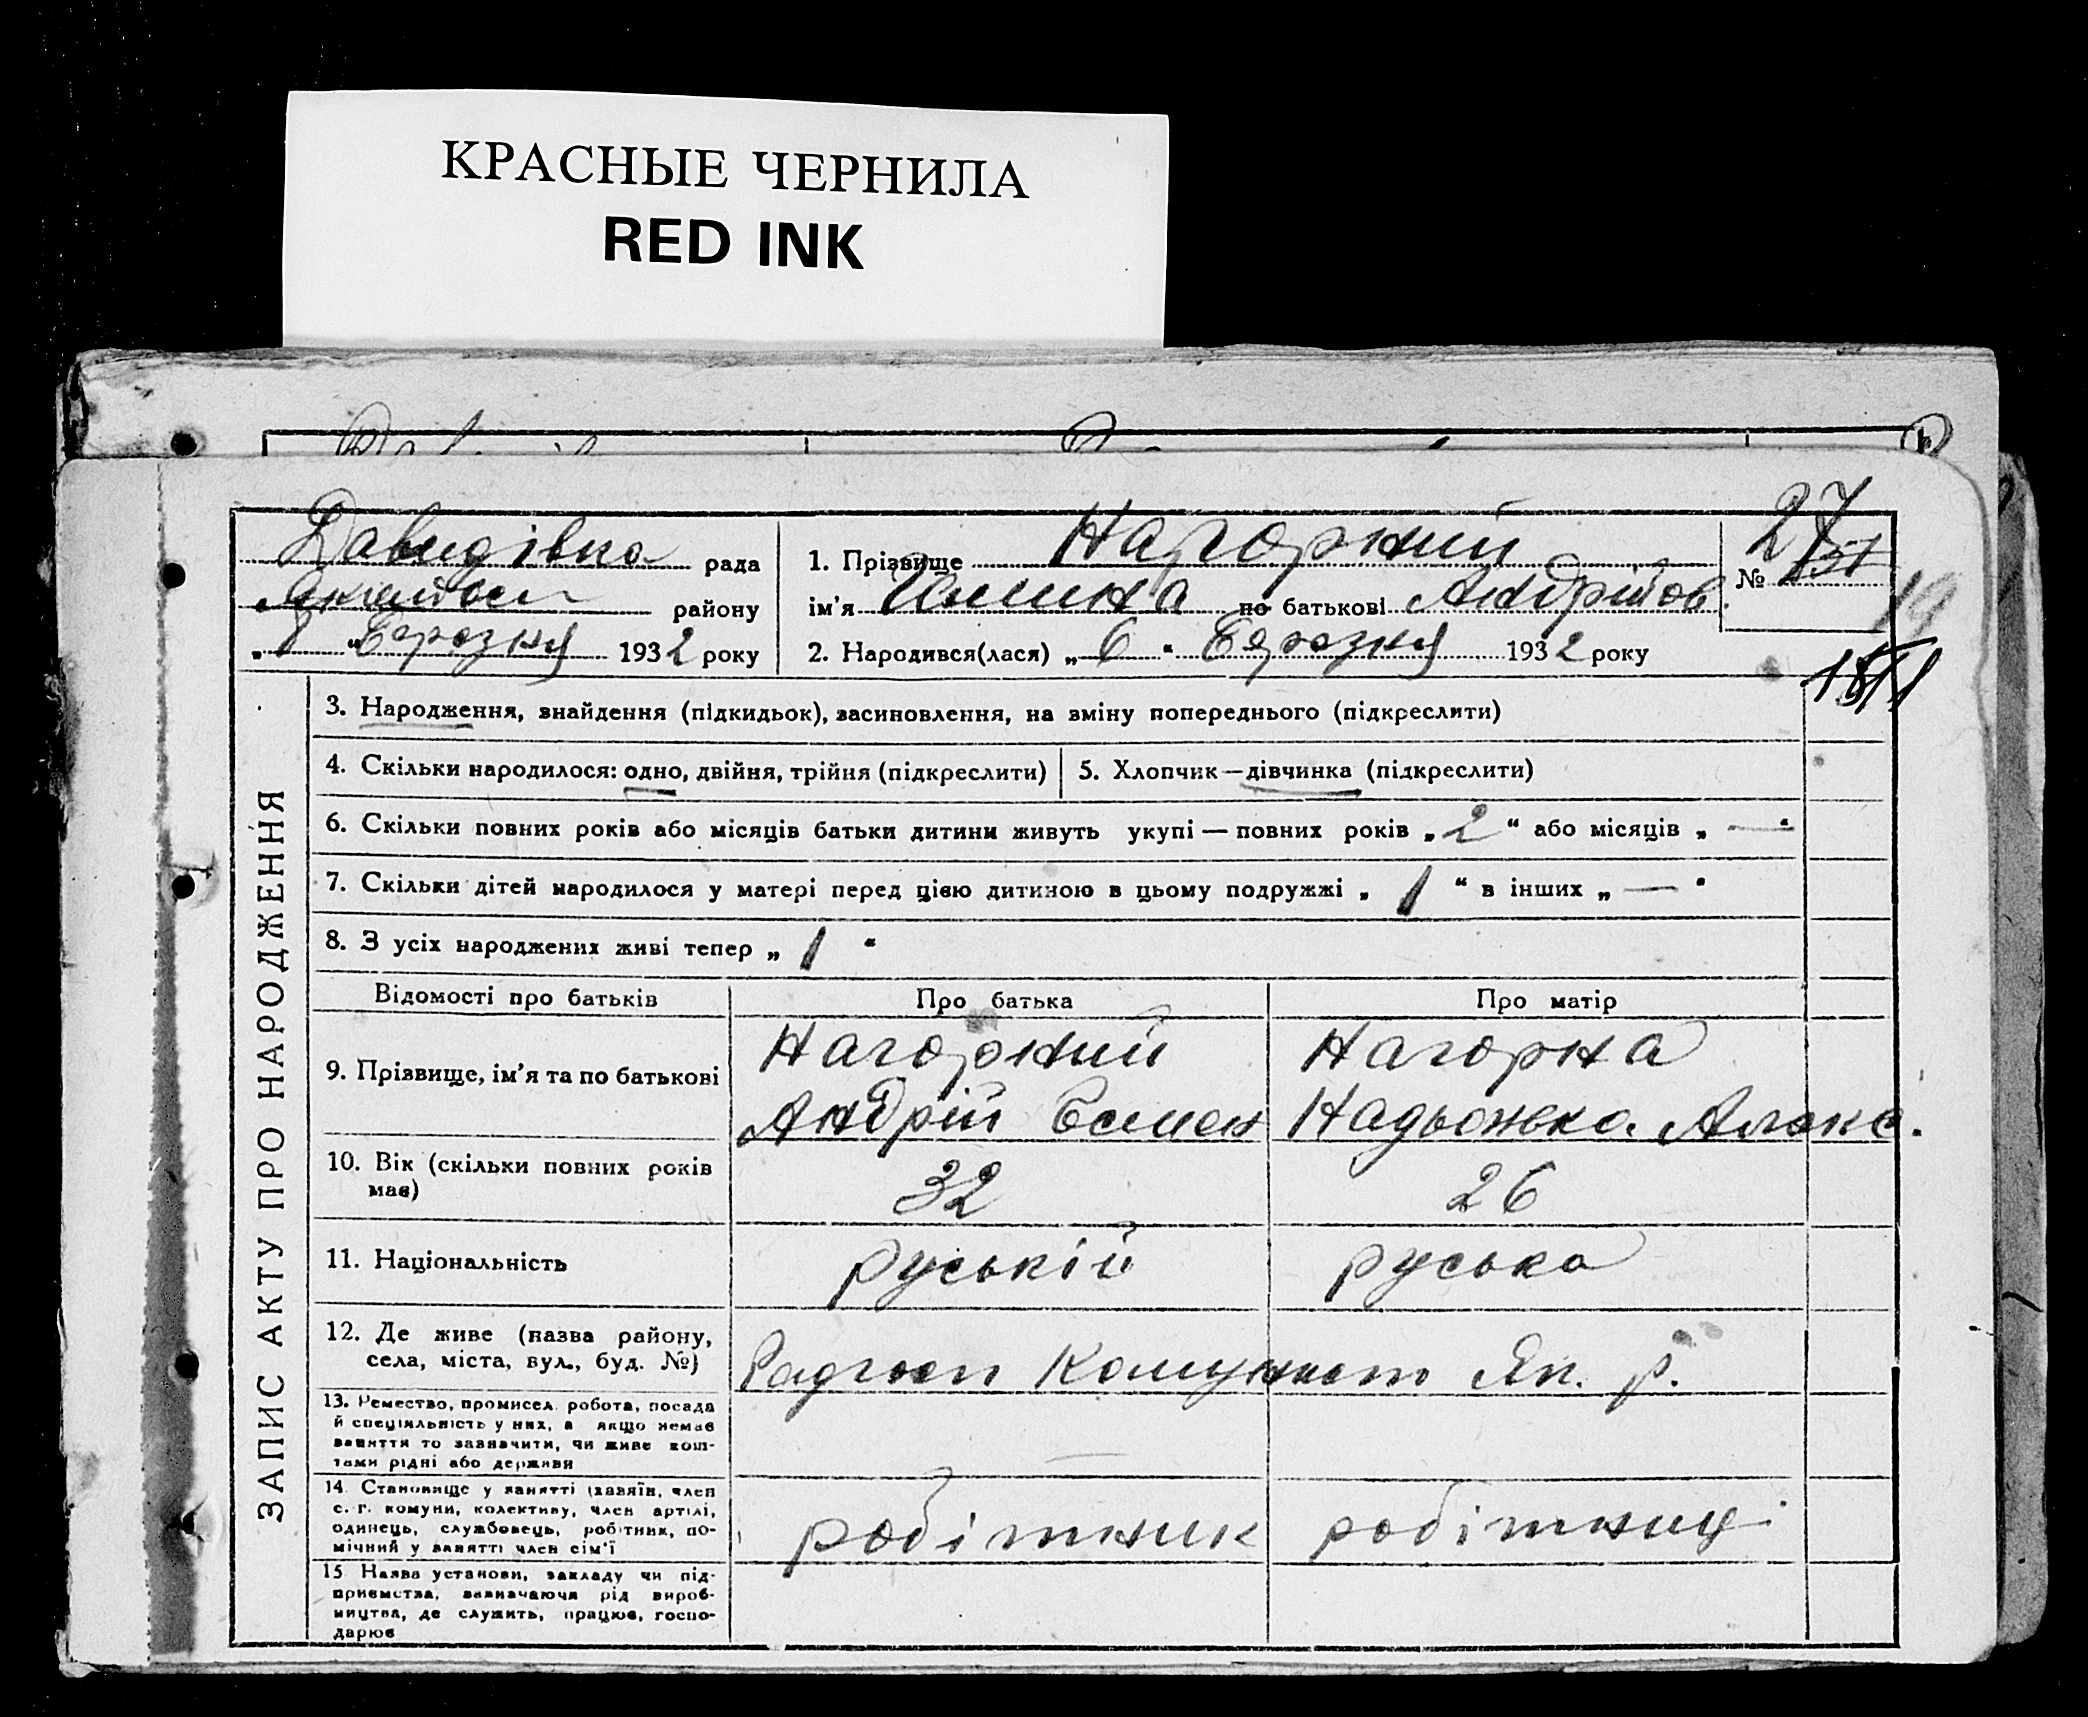 КРАСНЫЕ ЧЕРНИЛА
RED INK
Давидівка рада
району
"8" Березня 1932 року
1. Прізвище Нагорний
ім'я по батькові Андрійов.
2. Народився(лася) „6" Березня 1932 року
№ 27
19
ЗАПИС АКТУ ПРО НАРОДЖЕННЯ
3. Народження, знайдення (підкидьок), засиновлення, на зміну попереднього (підкреслити)
4. Скільки народилося: одно, двійня, трійня (підкреслити)
5. Хлопчик—дівчинка (підкреслити)
6. Скільки повних років або місяців батьки дитини живуть укупі — повних років „2" або місяців „—"
7. Скільки дітей народилося у матері перед цією дитиною в цьому подружжі „1" в інших „—"
8. З усіх народжених живі тепер „1"
Відомості про батьків Про батька Про матір
9. Прізвище, ім'я та по батькові
Нагорний
Андрій Семен
Нагорна
Надьожка Алекс.
10. Вік (скільки повних років має)
32
26
11. Національність
руській
руська
12. Де живе (назва району,
села, міста, вул., буд. №)
Радгосп Комунист Як. р.
13. Ремество, промисел, робота, посада
й спеціяльність у них, а якщо немає
заняття то зазначити, чи живе кош-
тами рідні або держави
—
14. Становище у занятті (хазяїн, член
с.-г. комуни, колективу, член артілі,
одинець, службовець, робітник, по-
мічний у занятті член сім'ї
робітник
робітниці
15. Назва установи, закладу чи під-
приємства, зазначаючи рід вироб-
ництва, де служить, працює, госпо-
дарює